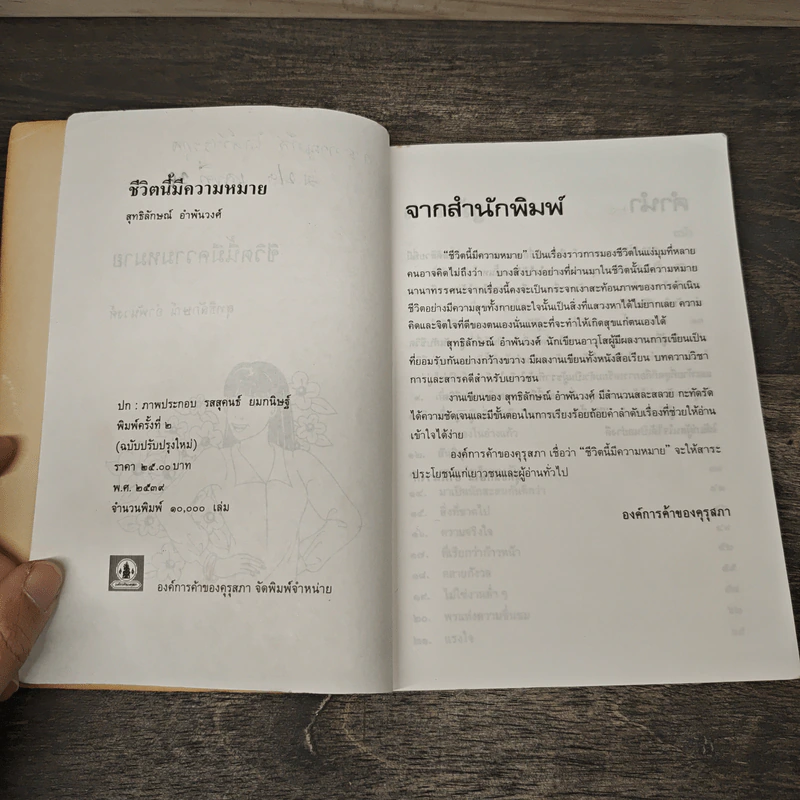 ชีวิตนี้มีความหมาย
สุทธิลักษณ์ อำพันวงศ์
ปก : ภาพประกอบ รสสุคนธ์ ยมกนิษฐ์
พิมพ์ครั้งที่ ๒
(ฉบับปรับปรุงใหม่)
ราคา ๒๕.๐๐ บาท
พ.ศ. ๒๕๓๙
จำนวนพิมพ์ ๑๐,๐๐๐ เล่ม
องค์การค้าของคุรุสภา จัดพิมพ์จำหน่าย
จากสำนักพิมพ์
“ชีวิตนี้มีความหมาย” เป็นเรื่องราวการมองชีวิตในแง่มุมที่หลาย
คนอาจคิดไม่ถึงว่า บางสิ่งบางอย่างที่ผ่านมาในชีวิตนั้นมีความหมาย
นานาทรรศนะจากเรื่องนี้คงจะเป็นกระจกเงาสะท้อนภาพของการดำเนิน
ชีวิตอย่างมีความสุขทั้งกายและใจนั้นเป็นสิ่งที่แสวงหาได้ไม่ยากเลย ความ
คิดและจิตใจที่ดีของตนเองนั่นแหละที่จะทำให้เกิดสุขแก่ตนเองได้
สุทธิลักษณ์ อำพันวงศ์ นักเขียนอาวุโสผู้มีผลงานการเขียนเป็น
ที่ยอมรับกันอย่างกว้างขวาง มีผลงานเขียนทั้งหนังสือเรียน บทความวิชา
การและสารคดีสำหรับเยาวชน
งานเขียนของ สุทธิลักษณ์ อำพันวงศ์ มีสำนวนสละสลวย กะทัดรัด
ได้ความชัดเจนและมีขั้นตอนในการเรียงร้อยถ้อยคำลำดับเรื่องที่ช่วยให้อ่าน
เข้าใจได้ง่าย
องค์การค้าของคุรุสภา เชื่อว่า “ชีวิตนี้มีความหมาย” จะให้สาระ
ประโยชน์แก่เยาวชนและผู้อ่านทั่วไป
องค์การค้าของคุรุสภา